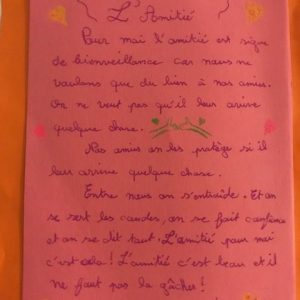 L'Amitié
Pour moi l'amitié est signe
de bienveillance car nous ne
voulons que du bien à nos amis.
On ne veut pas qu'il leur arrive
quelque chose.
Nos amis on les protège si il
leur arrive quelque chose.
Entre nous on s'entraide. Et on
se sert les coudes, on se fait confiance
et on se dit tout. L'amitié pour moi
c'est cela ! L'amitié c'est beau et il
ne faut pas la gâcher !